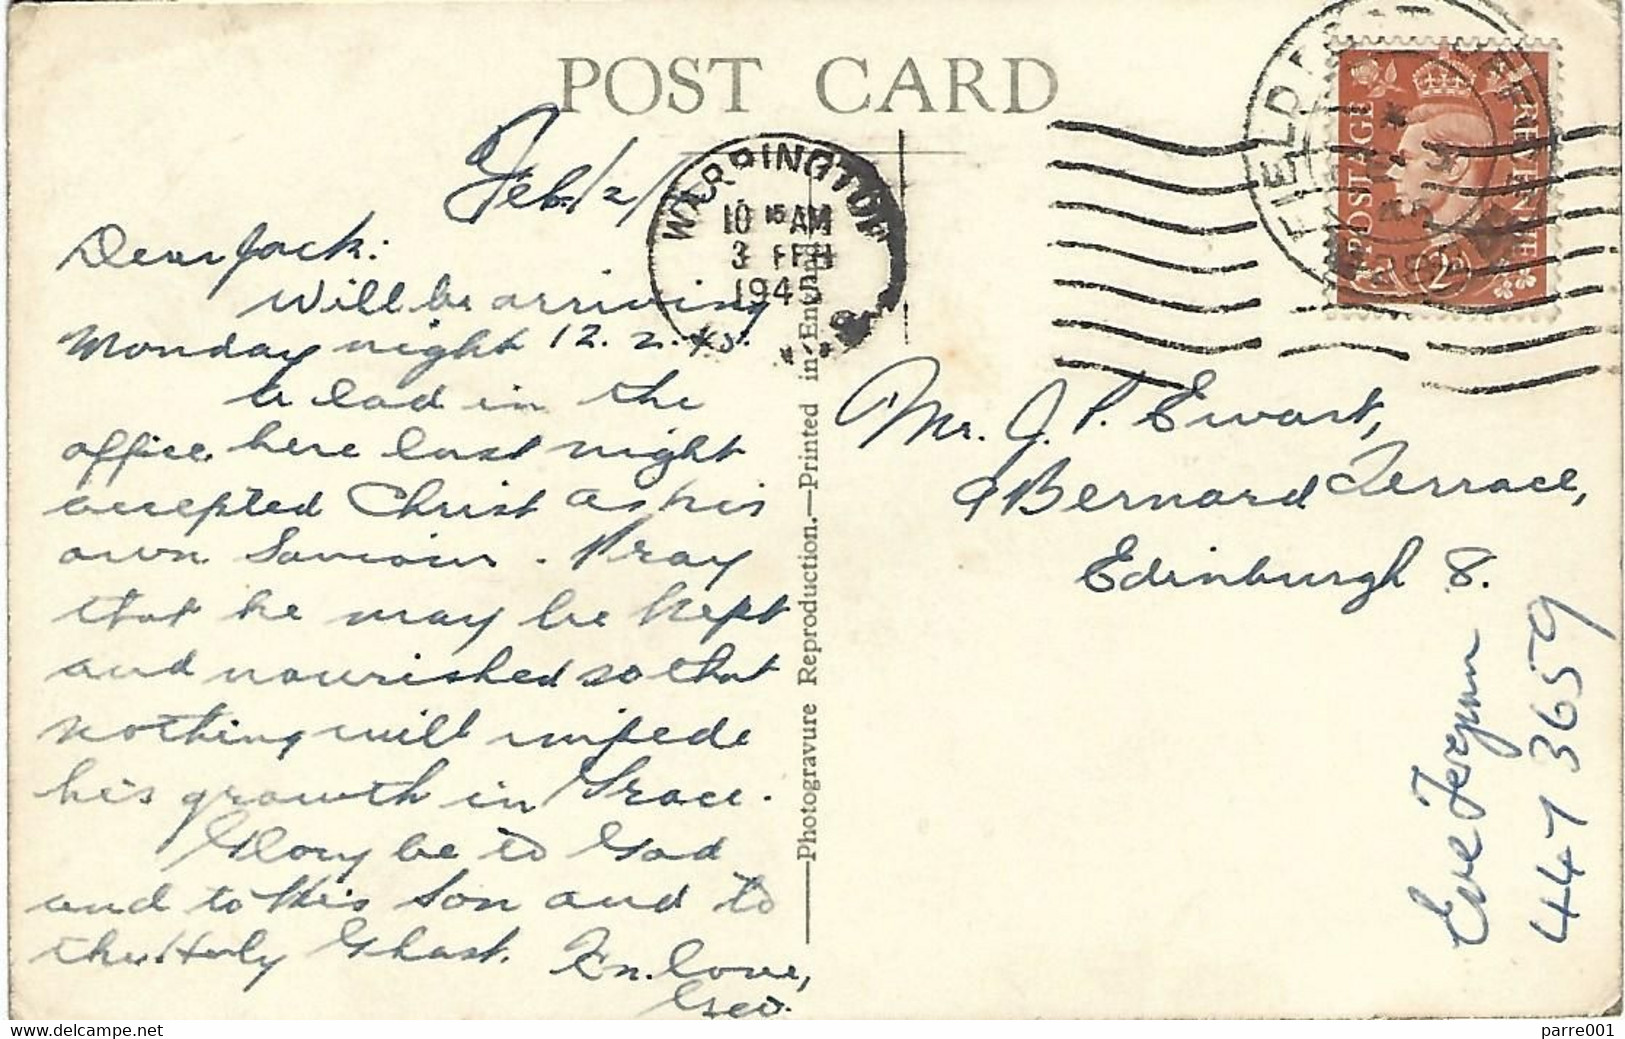 POST CARD
Feb/2/
WARRINGTON
10 15 AM
3 FEB
1945
FIELD
POSTAGE
REVENUE
Dear Jack:
Will be arriving
Monday night 12.2.45.
A lad in the
office here last night
accepted Christ as his
own Saviour. Pray
that he may be kept
and nourished so that
nothing will impede
his growth in Grace.
Glory be to God
and to His Son and to
the Holy Ghost. In love,
Geo.
Photogravure Reproduction.—Printed in England
Mr. J. P. Ewart,
9 Bernard Terrace,
Edinburgh 8.
Eve
447 3659
parre001